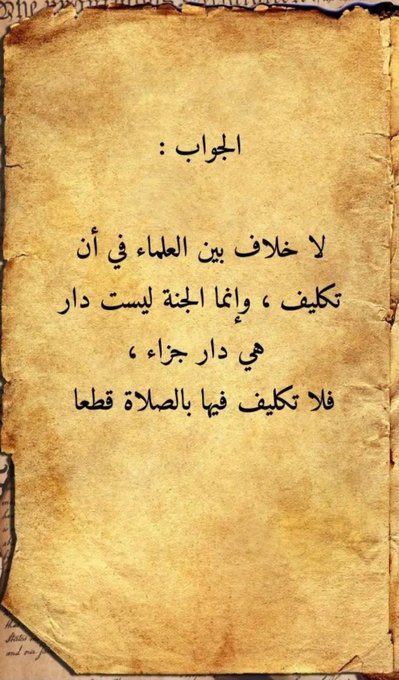 الجواب :
لا خلاف بين العلماء في أن
تكليف ، وإنما الجنة ليست دار
هي دار جزاء ،
فلا تكليف فيها بالصلاة قطعا